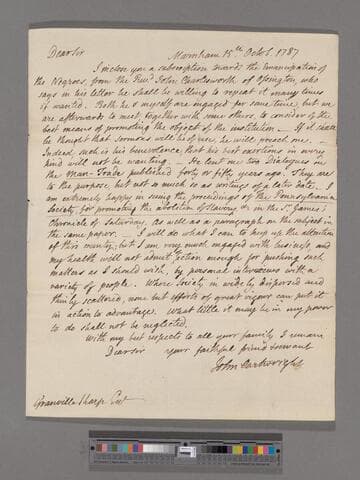 Dear Sir Marnham 15th Octr. 1787
I inclose you a subscription towards the Emancipation of
the Negroes, from the Revd. John Charlesworth of Ossington, who
says in his letter he shall be willing to repeat it many times
if wanted. Both he & myself are engaged for some time, but we
are afterwards to meet together with some others, to consider of the
best means of promoting the object of the institution. If it shall
be thought that sermons will be of use, he will preach one.
Indeed, such is his benevolence that his exertions in every
kind will not be wanting. He lent me two Dialogues on
the Man-Trade published forty or fifty years ago. They are
to the purpose, but not so much so as writings of a later date. I
am extremely happy in seeing the proceedings of the Pennsylvania
Society for promoting the abolition of slavery &c in the St. James's
Chronicle of Saturday, as well as a paragraph on the subject in
the same paper. I will do what I can to keep up the attention
of this county; but I am very much engaged with business and
my health will not admit action enough for pushing such
matters as I should wish, by personal interviews with a
variety of people. Where Society is widely dispersed and
thinly scattered, none but efforts of great vigour can put it
in action to advantage. What little it may be in my power
to do shall not be neglected.
With my best respects to all your family I remain
Dear Sir your faithful friend & servant
John Cartwright
Granville Sharp Esqr